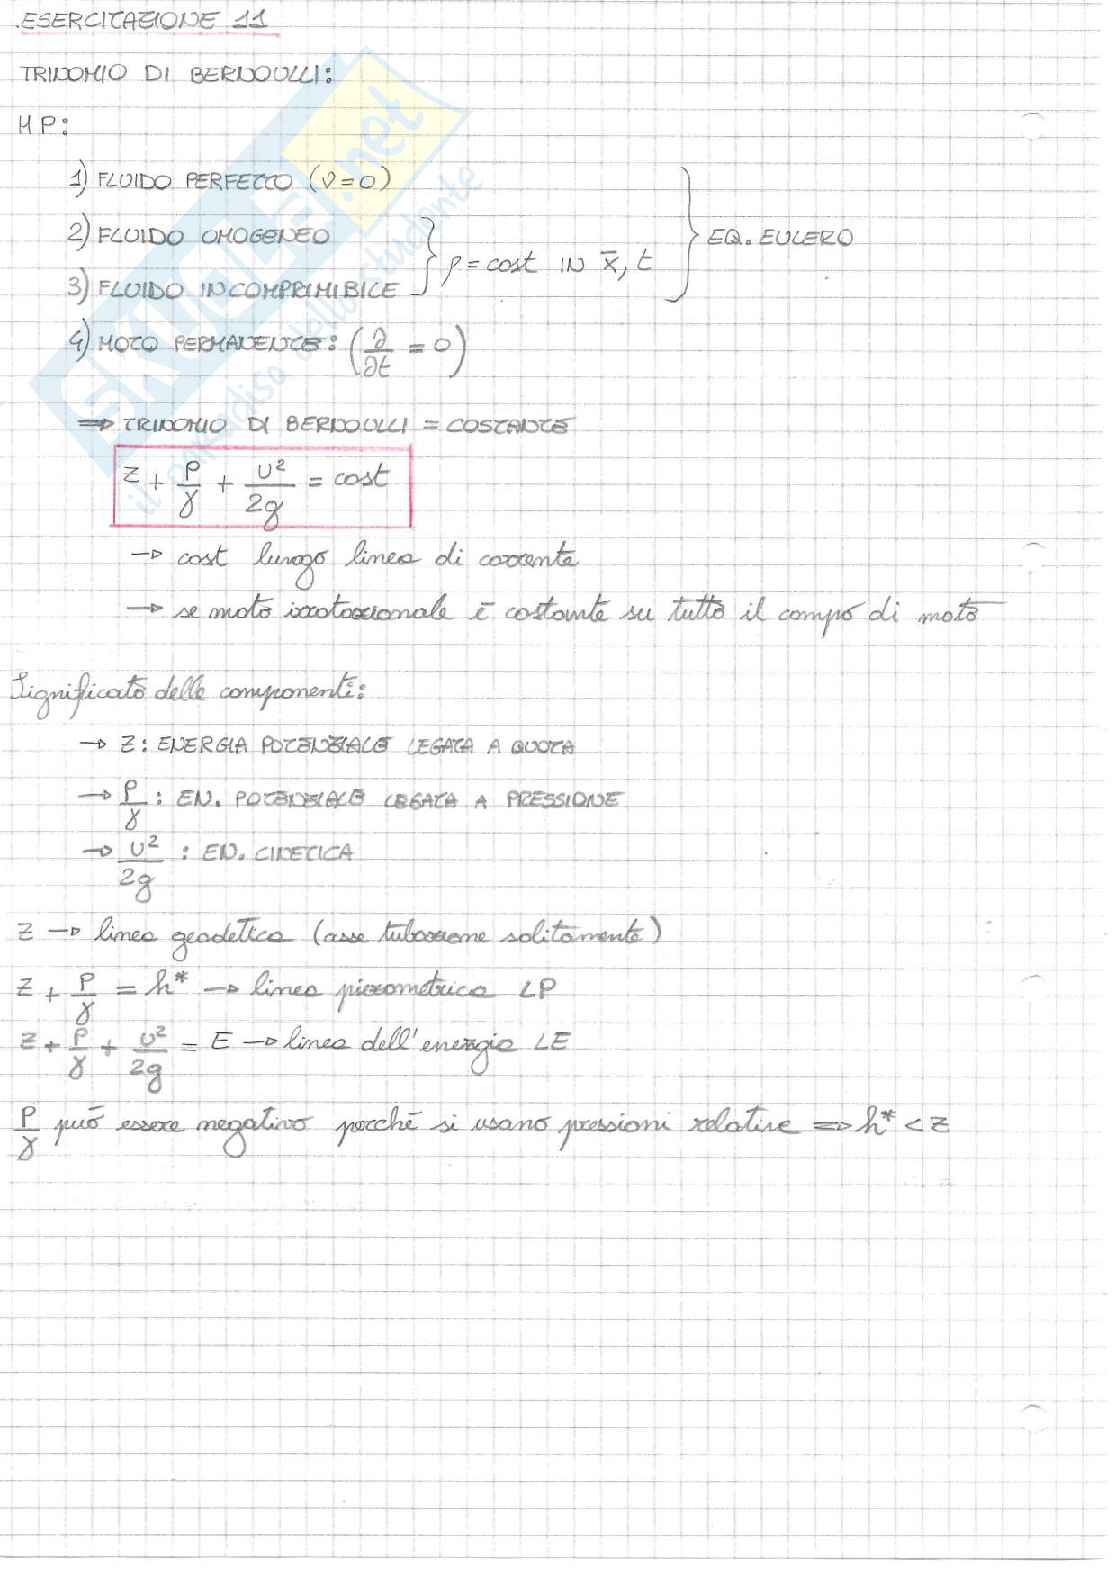 ESERCITAZIONE 11
TRINOMIO DI BERNOULLI:
HP:
1) FLUIDO PERFETTO (ν=0)
2) FLUIDO OMOGENEO
3) FLUIDO INCOMPRIMIBILE
ρ = cost IN x̄, t
EQ. EULERO
4) MOTO PERMANENTE: (∂/∂t = 0)
⇒ TRINOMIO DI BERNOULLI = COSTANTE
z + P/γ + U²/2g = cost
→ cost lungo linea di corrente
→ se moto irrotazionale è costante su tutto il campo di moto
Significato delle componenti:
→ z: ENERGIA POTENZIALE LEGATA A QUOTA
→ P/γ : EN. POTENZIALE LEGATA A PRESSIONE
→ U²/2g : EN. CINETICA
z → linea geodetica (asse tubazione solitamente)
z + P/γ = h* → linea piezometrica LP
z + P/γ + U²/2g = E → linea dell'energia LE
P/γ può essere negativo perché si usano pressioni relative ⇒ h* < z
SKUOLA.net
il paradiso dello studente